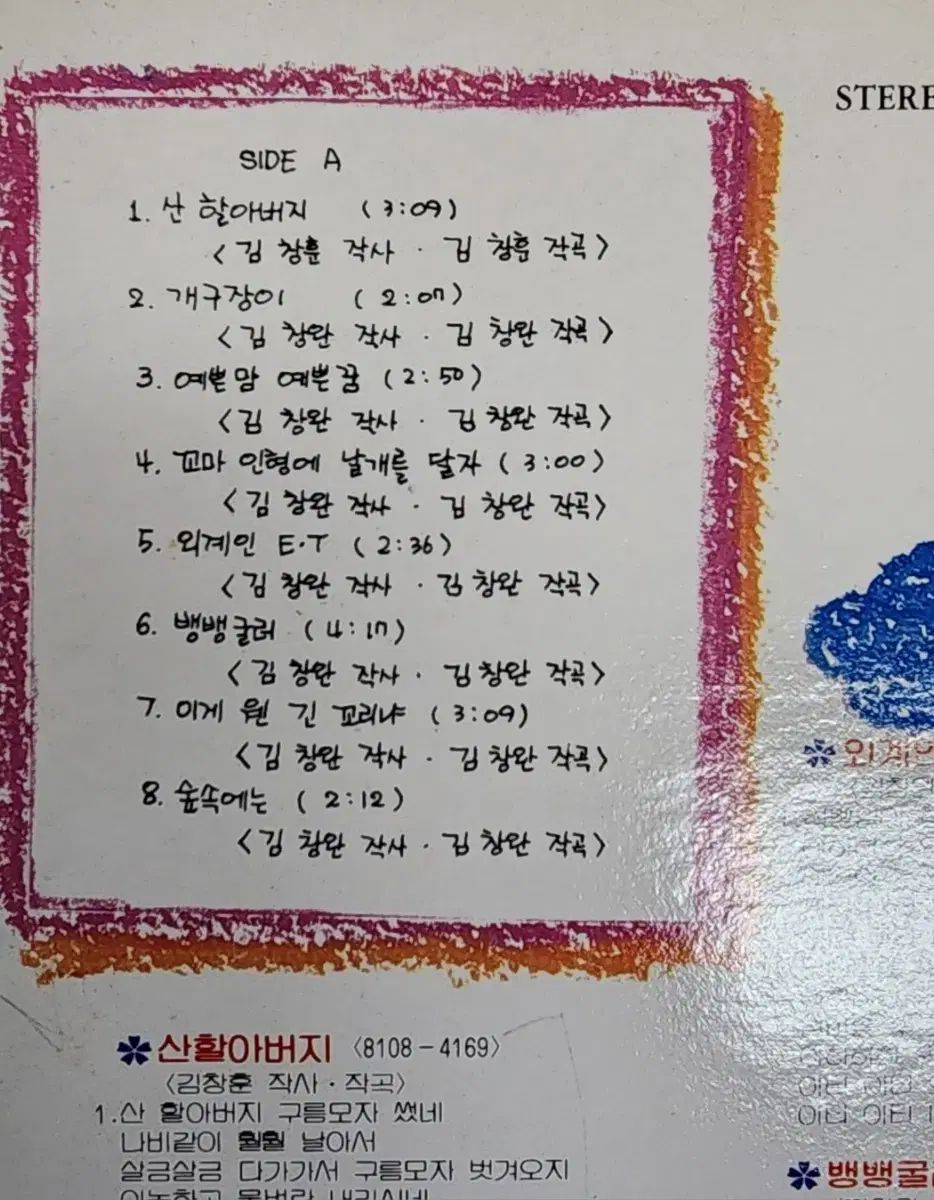 STERE
SIDE A
1. 산 할아버지 (3:09)
<김 창훈 작사 · 김 창훈 작곡>
2. 개구장이 (2:07)
<김 창완 작사 · 김 창완 작곡>
3. 예쁜맘 예쁜꿈 (2:50)
<김 창완 작사 · 김 창완 작곡>
4. 꼬마 인형에 날개를 달자 (3:00)
<김 창완 작사 · 김 창완 작곡>
5. 외계인 E·T (2:36)
<김 창완 작사 · 김 창완 작곡>
6. 뱅뱅굴러 (4:17)
<김 창완 작사 · 김 창완 작곡>
7. 이게 웬 긴 꼬리냐 (3:09)
<김 창완 작사 · 김 창완 작곡>
8. 숲속에는 (2:12)
<김 창완 작사 · 김 창완 작곡>
산할아버지 〈8108-4169〉
〈김창훈 작사·작곡〉
1.산 할아버지 구름모자 썼네
나비같이 훨훨 날아서
살금살금 다가가서 구름모자 벗겨오지
외계인
뱅뱅굴러